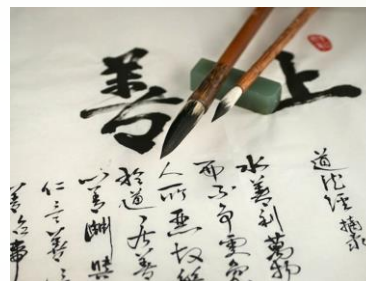 上善
道德经摘录
水善利萬物
而不争處
人所恶故
於道居善
心善渊與
仁言善
善